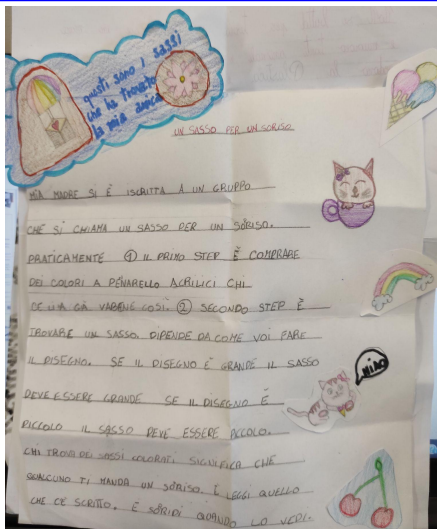 questi sono i sassi
che ha trovato
la mia amica
UN SASSO PER UN SORISO
MIA MADRE SI È ISCRITTA A UN GRUPPO
CHE SI CHIAMA UN SASSO PER UN SORISO.
PRATICAMENTE ① IL PRIMO STEP È COMPRARE
DEI COLORI A PENARELLO ACRILICI CHI
CE L'HA GIÀ VABENE COSÌ. ② SECONDO STEP È
TROVARE UN SASSO. DIPENDE DA COME VOI FARE
IL DISEGNO. SE IL DISEGNO È GRANDE IL SASSO
DEVE ESSERE GRANDE SE IL DISEGNO È
PICCOLO IL SASSO DEVE ESSERE PICCOLO.
CHI TROVA DEI SASSI COLORATI SIGNIFICA CHE
QUALCUNO TI MANDA UN SORISO. E LEGGI QUELLO
CHE CE SCRITTO. E SORIDI QUANDO LO VEDI.
MIAO